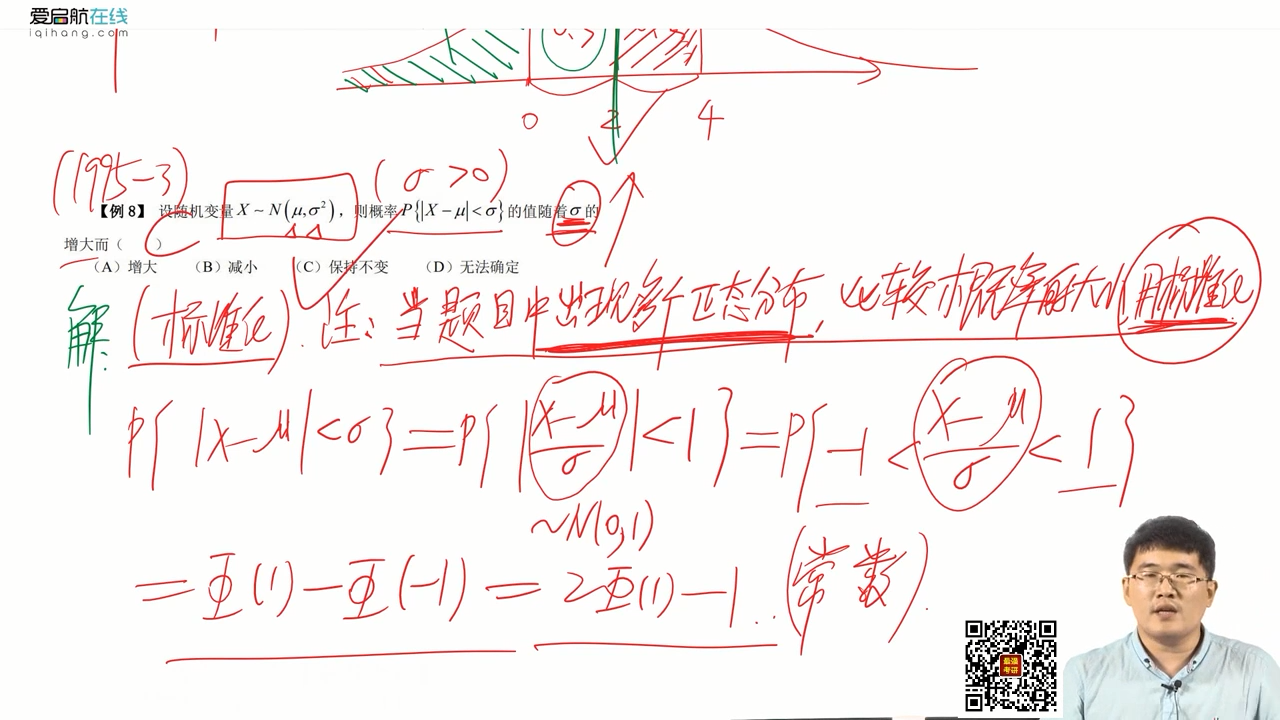 爱启航在线
iqihang.com
0.5
0 2 4
(1995-3) (σ>0)
【例 8】 设随机变量 X ~ N(μ,σ²)，则概率 P{|X − μ| < σ} 的值随着 σ 的
增大而（ C ）
（A）增大 （B）减小 （C）保持不变 （D）无法确定
解: (标准化). 注: 当题目中出现多个正态分布, 比较概率的大小, 用标准化
P{|X-μ|<σ}=P{|(X-μ)/σ|<1}=P{-1<(X-μ)/σ<1}
~N(0,1)
=Φ(1)-Φ(-1)=2Φ(1)-1..(常数).
最强
考研